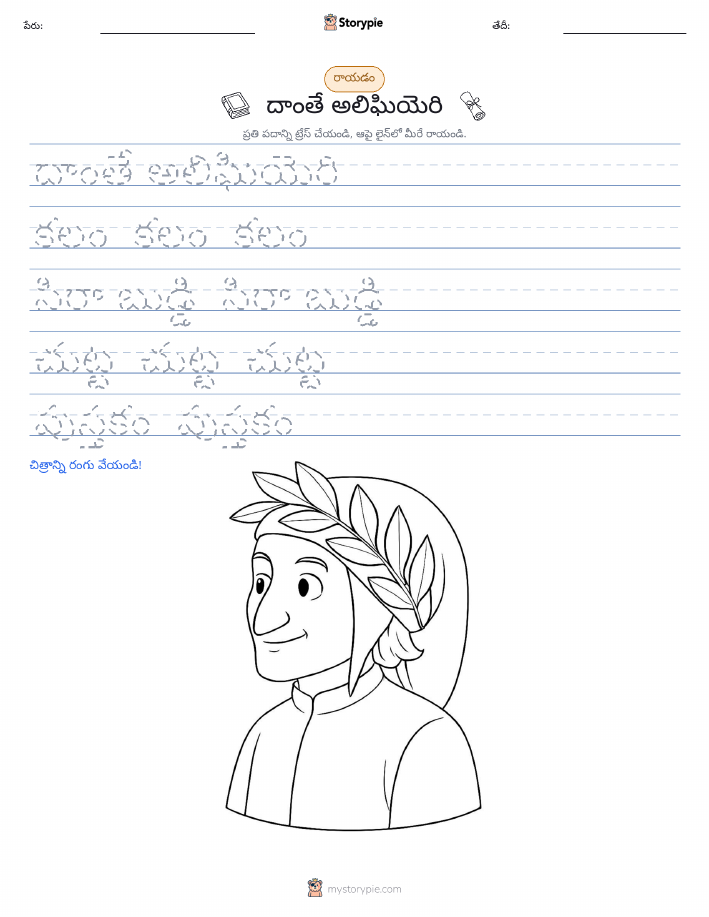 పేరు:
Storypie
తేదీ:
రాయడం
దాంతే అలిఘియెరి
ప్రతి పదాన్ని ట్రేస్ చేయండి, ఆపై లైన్‌లో మీరే రాయండి.
దాంతే అలిఘియెరి
కలం కలం కలం
సిరా బుడ్డి సిరా బుడ్డి
చుట్ట చుట్ట చుట్ట
పుస్తకం పుస్తకం
చిత్రాన్ని రంగు వేయండి!
mystorypie.com